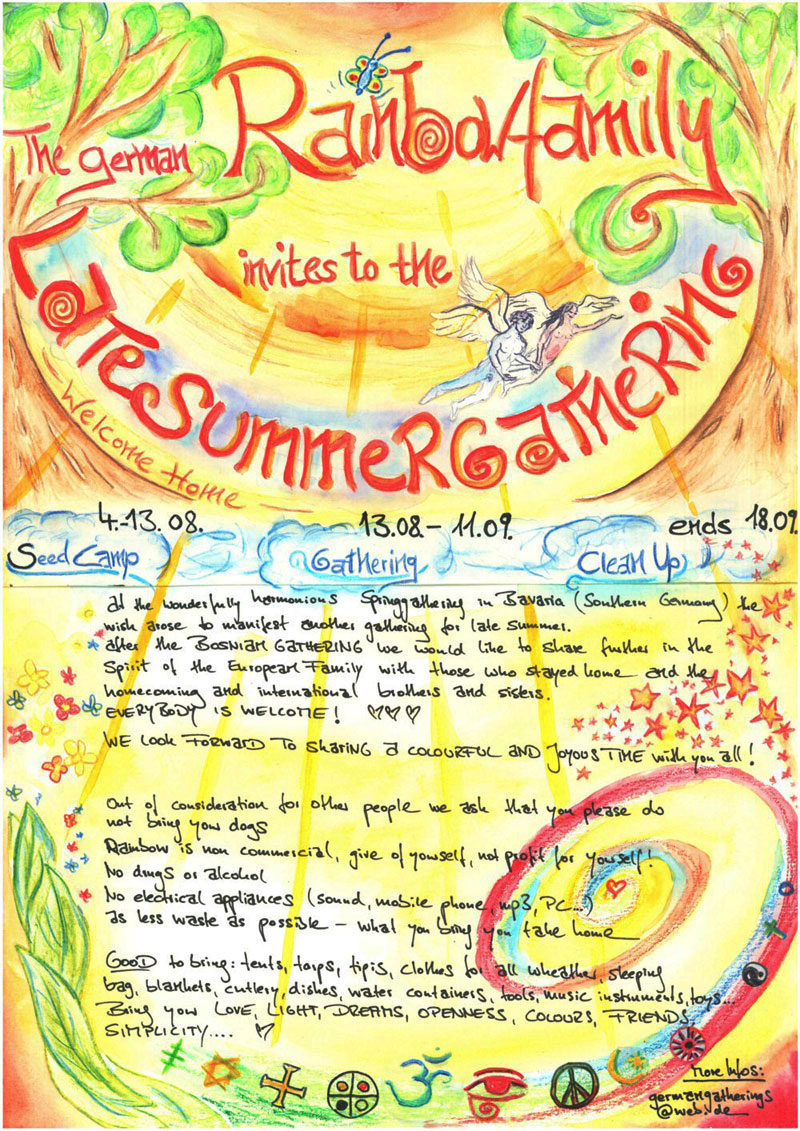 The german Rainbowfamily
invites to the
Late Summer Gathering
– Welcome Home –
4.-13.08. 13.08 – 11.09. ends 18.09.
Seed Camp Gathering Clean Up
at the wonderfully harmonious Springgathering in Bavaria (Southern Germany) the
wish arose to manifest another gathering for late summer.
after the BOSNIAN GATHERING we would like to share further in the
Spirit of the European Family with those who stayed home and the
homecoming and international brothers and sisters.
EVERYBODY IS WELCOME! ♡♡♡
WE LOOK FORWARD TO sharing a COLOURFUL AND JOYOUS TIME with you all!
Out of consideration for other people we ask that you please do
not bring your dogs
Rainbow is non commercial, give of yourself, not profit for yourself!
No drugs or alcohol
No electrical appliances (sound, mobile phone, mp3, PC...)
as less waste as possible – what you bring you take home
GOOD to bring: tents, tarps, tipis, clothes for all wheather, sleeping
bag, blankets, cutlery, dishes, water containers, tools, music instruments, toys...
Bring your LOVE, LIGHT, DREAMS, OPENNESS, COLOURS, FRIENDS,
SIMPLICITY.... ♡
ॐ
More Infos:
germangatherings
@web.de